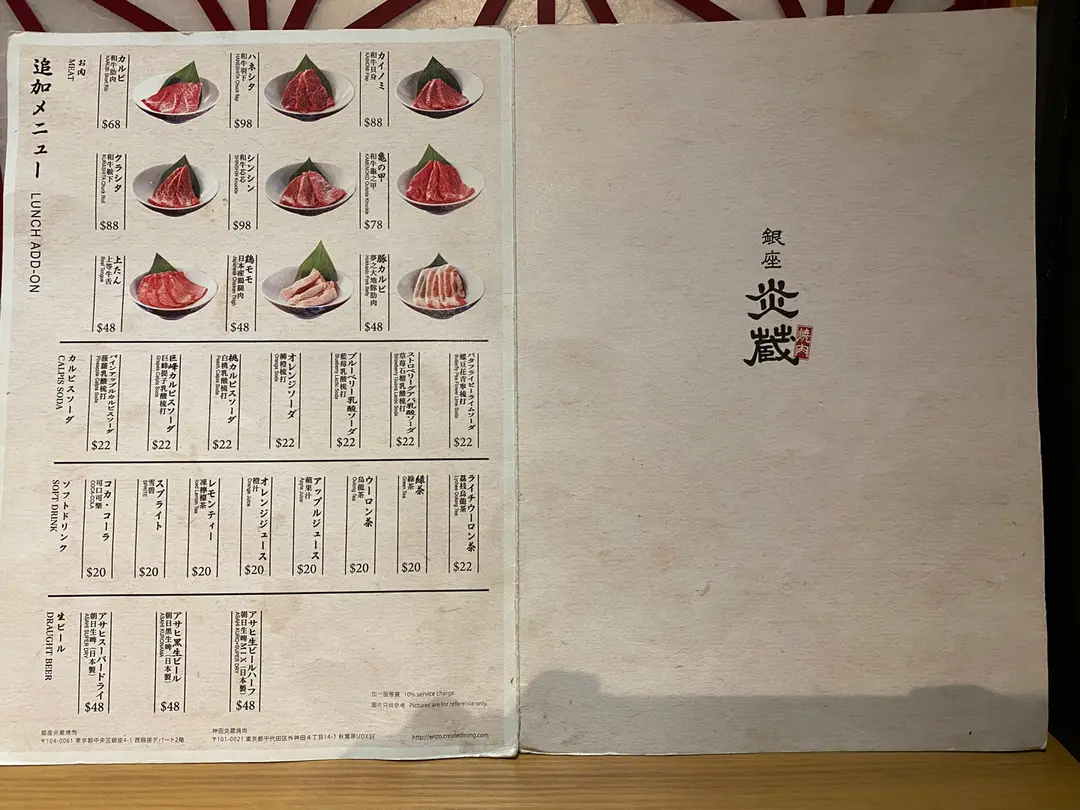 追加メニュー
LUNCH ADD-ON
お肉
MEAT
カルビ
和牛肋肉
KARUBI Short Rib
$68
ハネシタ
和牛羽下
HANESHITA Chuck Flap
$98
カイノミ
和牛貝身
KAINOMI Flap
$88
クラシタ
和牛鞍下
KURASHITA Chuck Roll
$88
シンシン
和牛芯芯
SHINSHIN Knuckle
$98
亀の甲
和牛龜之甲
KAMENOKO Outside Knuckle
$78
上たん
上等牛舌
Beef Tongue
$48
鶏モモ
日本産鶏腿肉
Japanese Chicken Thigh
$48
豚カルビ
夢之大地豚肋肉
Hokkaido Pork Belly
$48
カルピスソーダ
CALPIS SODA
パインアップルカルピスソーダ
菠蘿乳酸梳打
Pineapple Calpis Soda
$22
巨峰カルピスソーダ
巨峰提子乳酸梳打
Grape Calpis Soda
$22
桃カルピスソーダ
白桃乳酸梳打
Peach Calpis Soda
$22
オレンジソーダ
香橙梳打
Orange Soda
$22
ブルーベリー乳酸ソーダ
藍莓乳酸梳打
Blueberry Lactic Soda
$22
ストロベリーグアバ乳酸ソーダ
草莓石榴乳酸梳打
Strawberry Guava Lactic Soda
$22
バタフライピーライムソーダ
蝶豆花青檸梳打
Butterfly Pea Flower Lime Soda
$22
ソフトドリンク
SOFT DRINK
コカ・コーラ
可口可樂
COCA-COLA
$20
スプライト
雪碧
SPRITE
$20
レモンティー
凍檸檬茶
Iced Lemon Tea
$20
オレンジジュース
橙汁
Orange Juice
$20
アップルジュース
蘋果汁
Apple Juice
$20
ウーロン茶
烏龍茶
Oolong Tea
$20
緑茶
綠茶
Green Tea
$20
ライチウーロン茶
荔枝烏龍茶
Lychee Oolong Tea
$22
生ビール
DRAUGHT BEER
アサヒスーパードライ
朝日生啤(日本製)
ASAHI SUPER DRY
$48
アサヒ黒生ビール
朝日黒生啤(日本製)
ASAHI KURONAMA
$48
アサヒ生ビールハーフ
朝日生啤MIX(日本製)
ASAHI KURO+SUPER DRY
$48
加一服務費 10% service charge.
圖片只供參考 Pictures are for reference only.
銀座炎蔵焼肉
〒104-0061 東京都中央区銀座4-1 西銀座デパート2階
神田炎蔵焼肉
〒101-0021 東京都千代田区外神田4丁目14-1 秋葉原UDX3F
http://enzo.createdining.com
銀座
炎蔵
焼肉